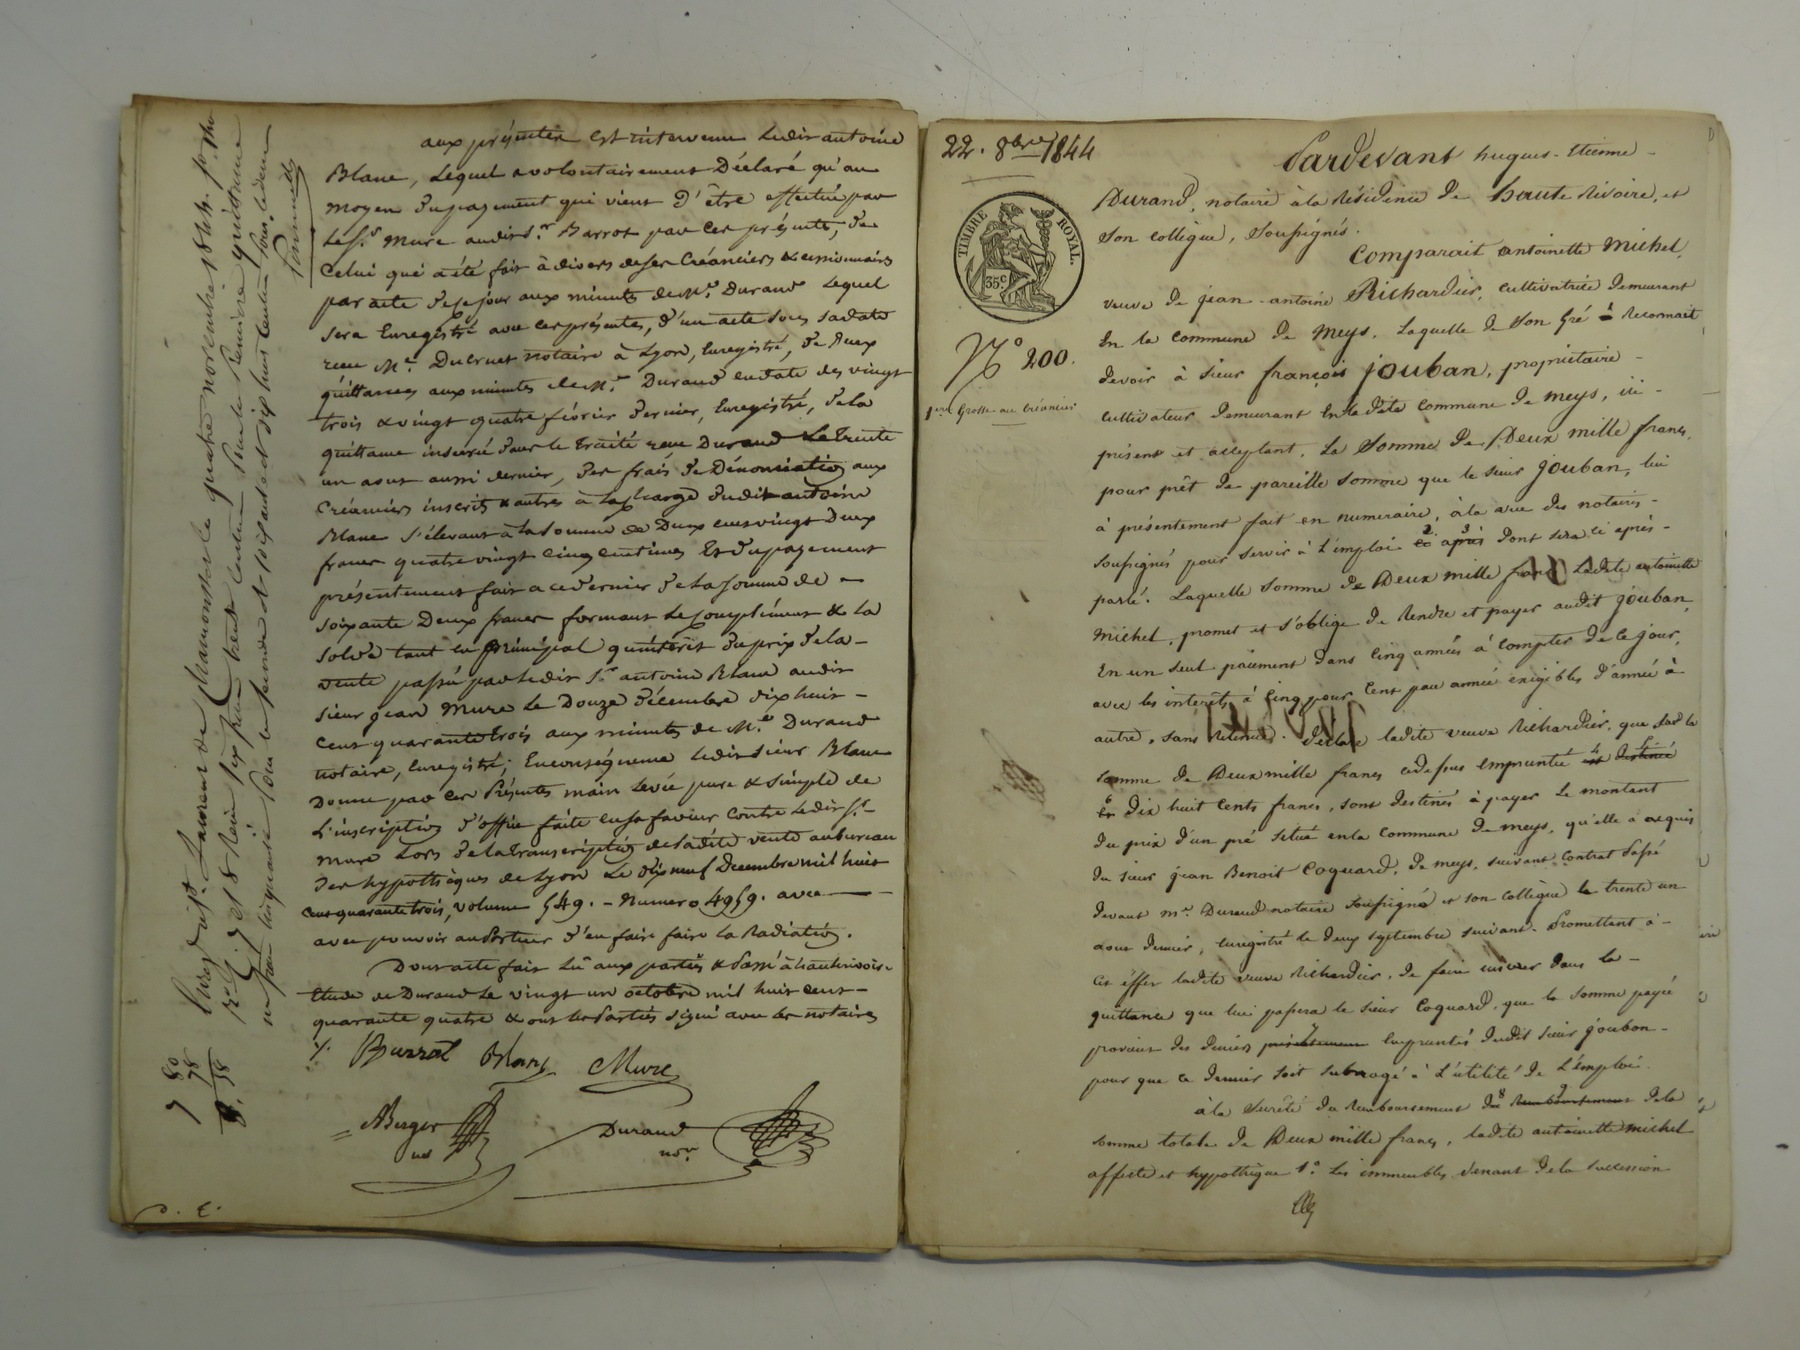 aux présentes est intervenu ledit antoine
Blanc, Lequel a volontairement Déclaré qu'au
moyen du payement qui vient d'être effectué par
Le S.r Mure audit S.r Barrot par ces présentes, de
Celui qui a été fait à divers de ses Créanciers & cessionnaires
par acte de ce jour aux minutes de M.e Durand Lequel
sera Enregistré avec ces présentes, d'un acte sous sa date
reçu M.e Ducruet notaire à Lyon, Enregistré, de Deux
quittances aux minutes de M.e Durand en date des vingt
trois & vingt quatre février dernier, Enregistré, de la
quittance insérée dans le traité reçu Durand Le Trente
un aout aussi dernier, des frais de Dénonciation aux
Créanciers inscrits & autres à la charge dudit antoine
Blanc S'élevant à la somme de Deux cent vingt Deux
francs quatre vingt cinq centimes Et du payement
présentement fait a ce dernier de la somme de
soixante Deux francs formant Le Complément & la
solde tant en principal qu'intérêt du prix de la
vente passée par ledit S.r antoine Blanc audit
sieur jean Mure Le Douze Décembre dix huit
Cent quarante trois aux minutes de M.e Durand
notaire, Enregistré; En conséquence ledit sieur Blanc
Donne par ces Présentes main levée pure & simple de
L'inscription d'office faite en sa faveur contre ledit S.r
Mure Lors de la transcription de ladite vente au bureau
des hypothèques de Lyon Le dix neuf Decembre mil huit
Cent quarante trois, volume 549. - Numero 4959. avec
avec pouvoir au Porteur d'en faire faire la Radiation.
Dont acte fait Lu aux parties & Passé à hauterivoire
Etude de Durand Le vingt un octobre mil huit cent
quarante quatre & ont les Parties signé avec les notaires
Barrot Blanc Mure
ABerger Durand
not.re
Enreg. à St. Laurent de Chamousset le quatre novembre 1844. f.o
80
78
18
22. 8bre 1844
TIMBRE ROYAL.
35c
N.o 200.
1.ere Grosse au Créancier
Pardevant hugues-Etienne
Durand, notaire à la Résidence de haute Rivoire, et
Son collègue, Soussignés.
Comparait antoinette Michel,
veuve de jean-antoine Richardier, cultivatrice Demeurant
En la commune de Meys, Laquelle de Son Gré à Reconnait
devoir à Sieur françois jouban, propriétaire
cultivateur demeurant En ladite commune de Meys, ici
présent et acceptant, La Somme de Deux mille francs,
pour prêt de pareille somme que le Sieur jouban, lui
à présentement fait en numeraire, à la vue des notaires
Soussignés pour servir à L'emploi ci après Dont sera ci après
parlé. Laquelle Somme de Deux mille francs Ladite antoinette
Michel, promet et s'oblige de Rendre et payer audit jouban,
En un seul paiement Dans Cinq années à compter de ce jour,
avec les interêts à Cinq pour Cent par année exigibles d'année à
autre, sans Retenue. Déclare ladite veuve Richardier, que sur la
somme de Deux mille francs cidessus empruntée est destinée
en Dix huit Cents francs, sont destinés à payer Le montant
du prix d'un pré Situé en la Commune de Meys, qu'elle a acquis
du sieur jean Benoit Coquard, de Meys, suivant Contrat Passé
devant M.e Durand notaire soussigné et son collègue le trente un
aout dernier, Enregistré le deux septembre suivant. Promettant à
cet éffet ladite veuve Richardier, de faire insérer dans la
quittance que lui passera le Sieur Coquard, que la somme payée
provient des deniers présentement Empruntés dudit Sieur jouban
pour que ce dernier soit subrogé à L'utilité de L'emploi.
à la Sureté du Remboursement du Remboursement de la
somme totale de Deux mille francs, ladite antoinette Michel
affecte et hypothèque 1.o Les immeubles Venant de la succession